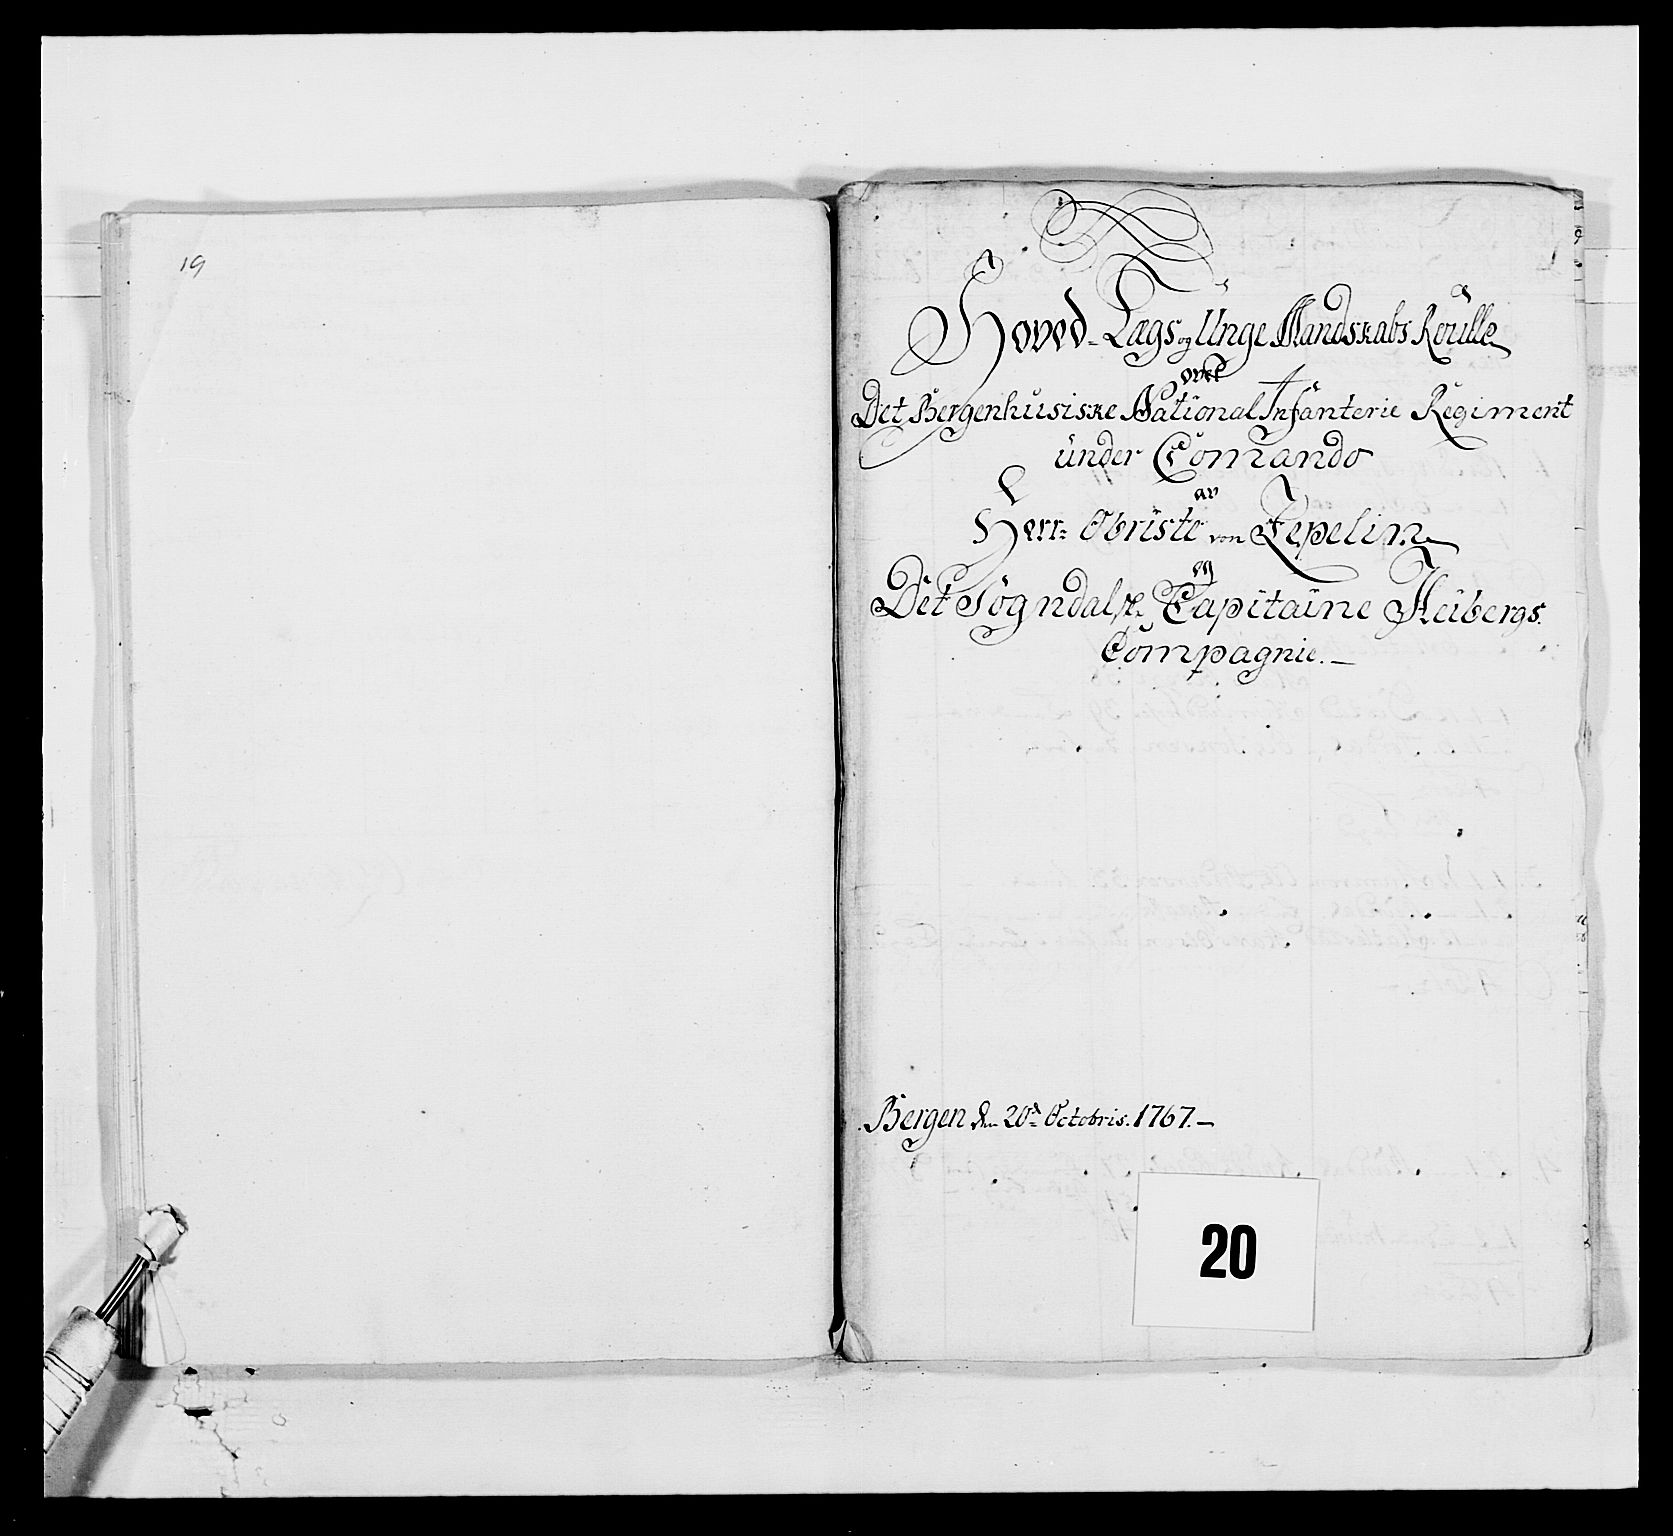 19
Hoved-Lægs og Unge Mandskabs Roulle
over
Det Bergenhusiske National Infanterie Regiment
under Comando
av
Herr: Obriste von Zepelin
og
Det Sogndalske Capitaine Heibergs
Compagnie.
Bergen den 20de Octobris. 1767.
20